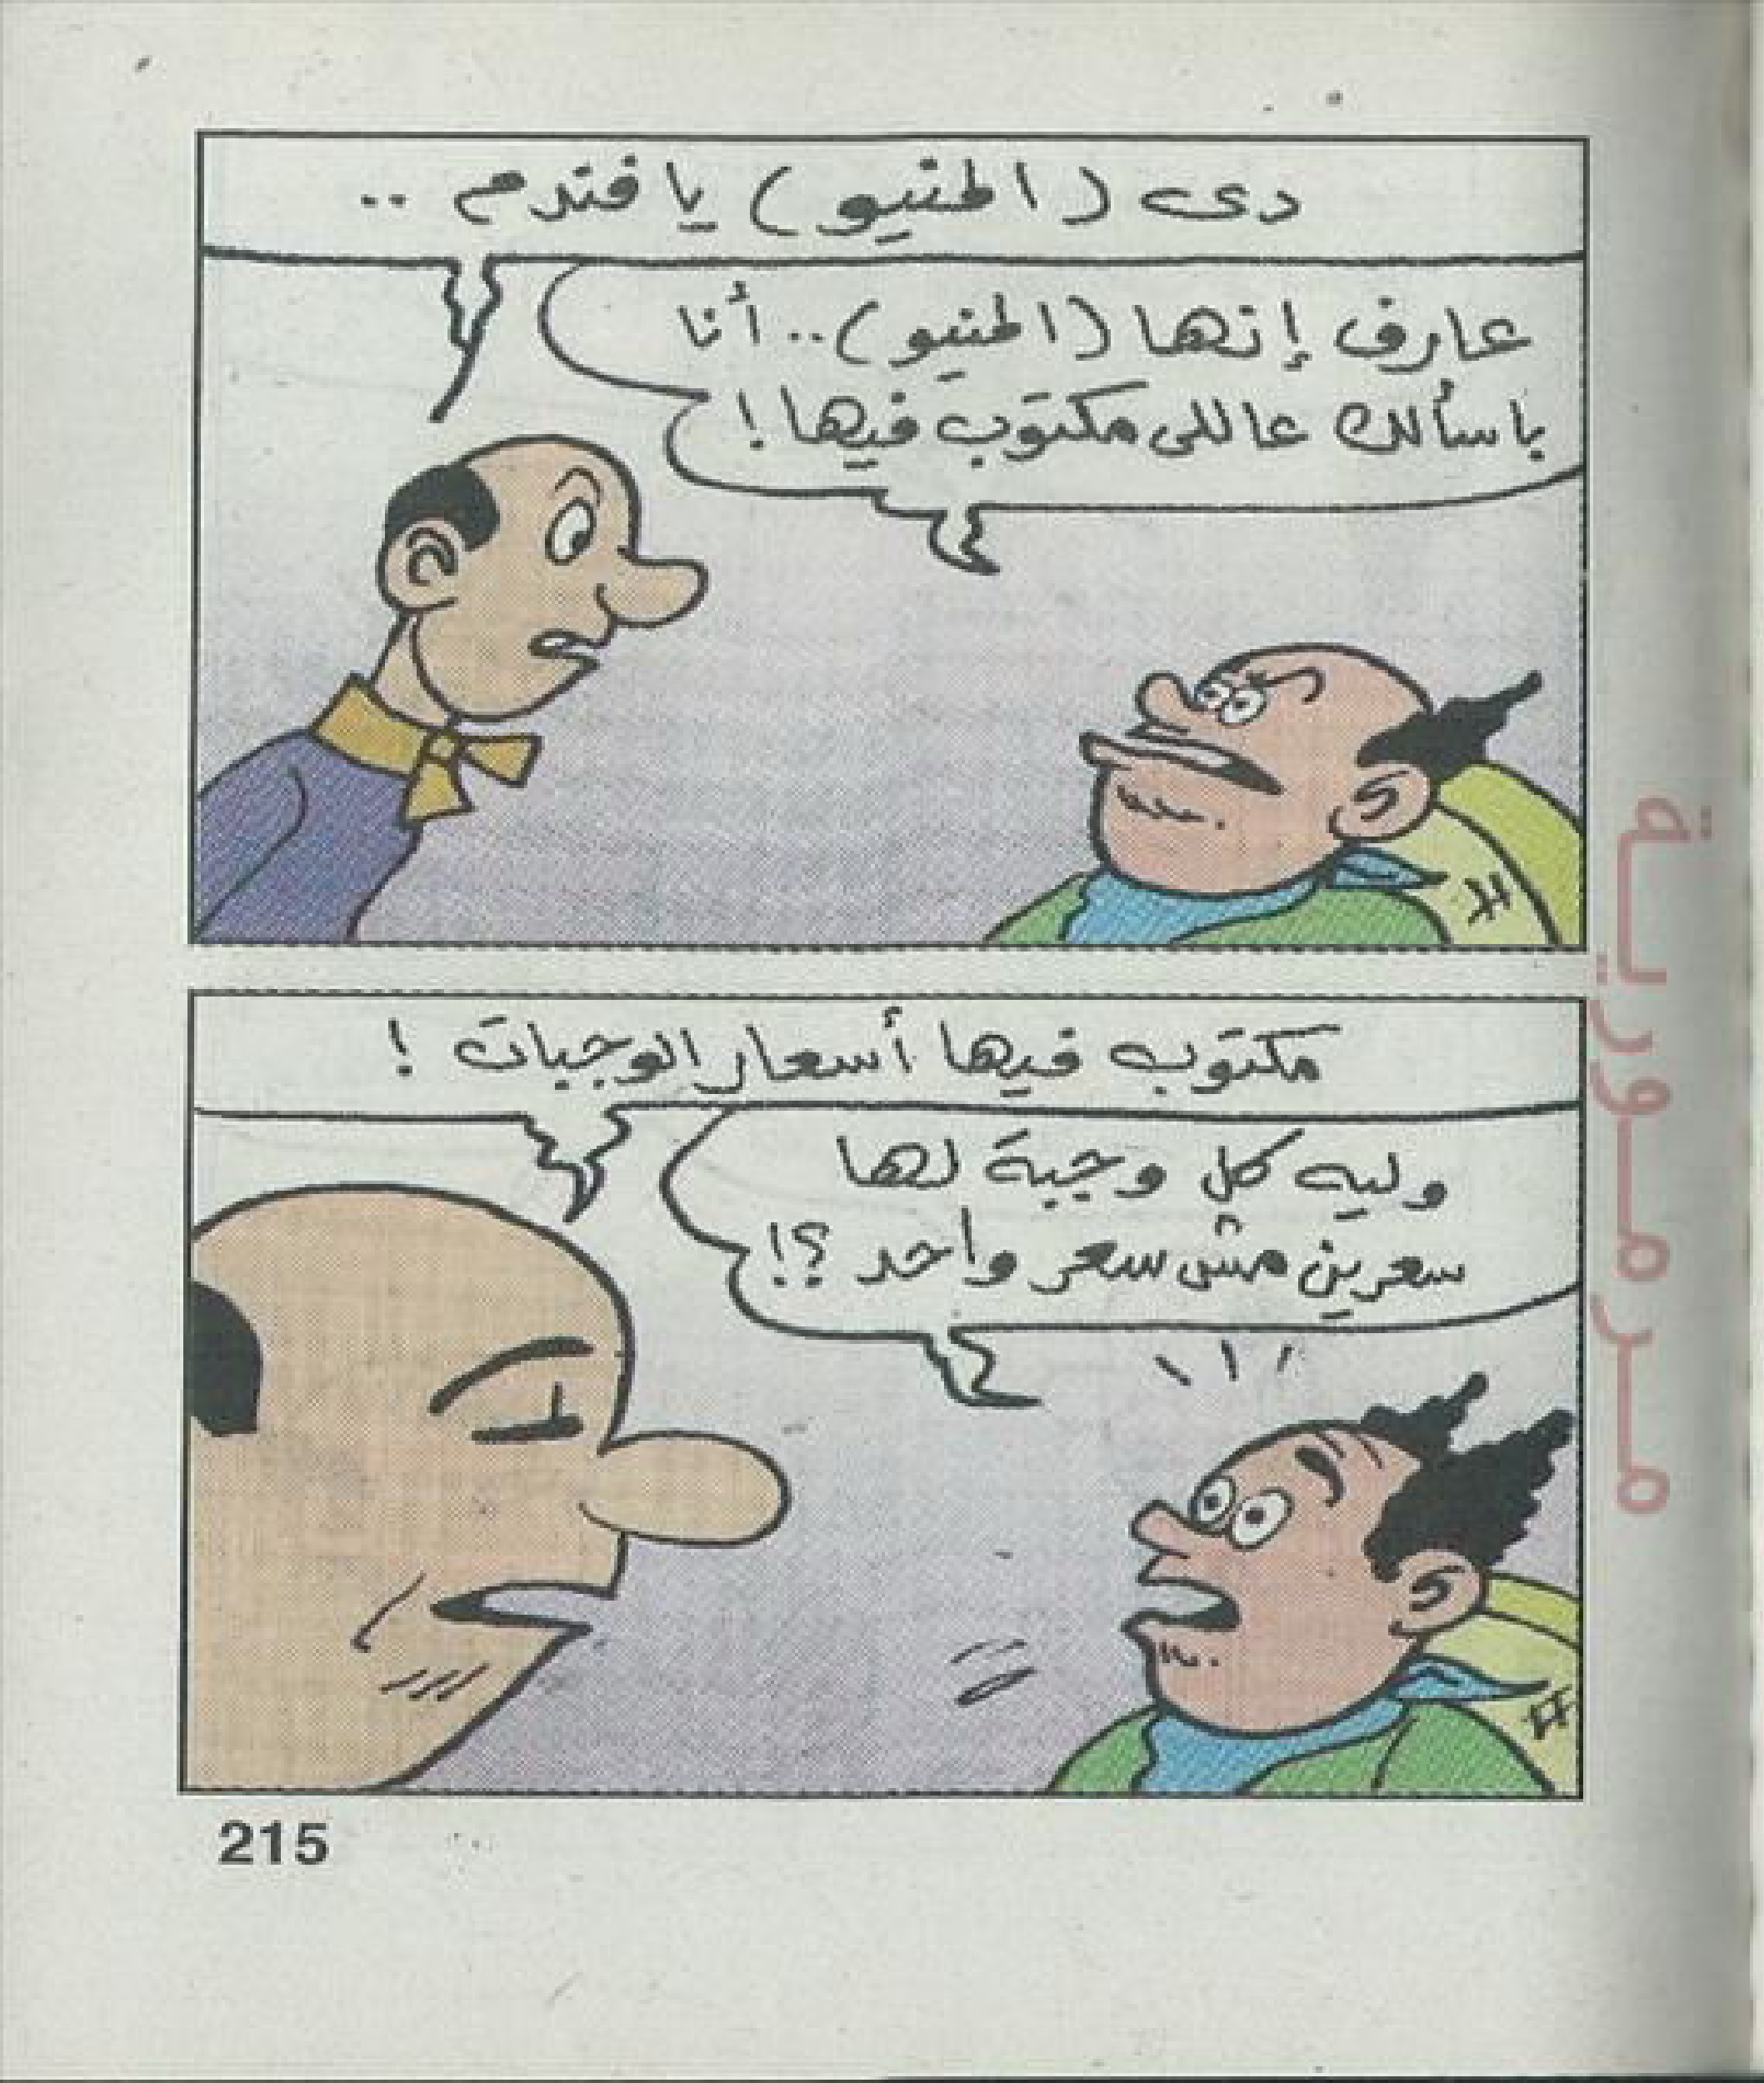 دى (المنيو) يا فندم ..
عارف إنها (المنيو).. أنا
باسألك عاللى مكتوب فيها !
مكتوب فيها أسعار الوجبات !
وليه كل وجبة لها
سعرين مش سعر واحد ؟!
215
مرمورية